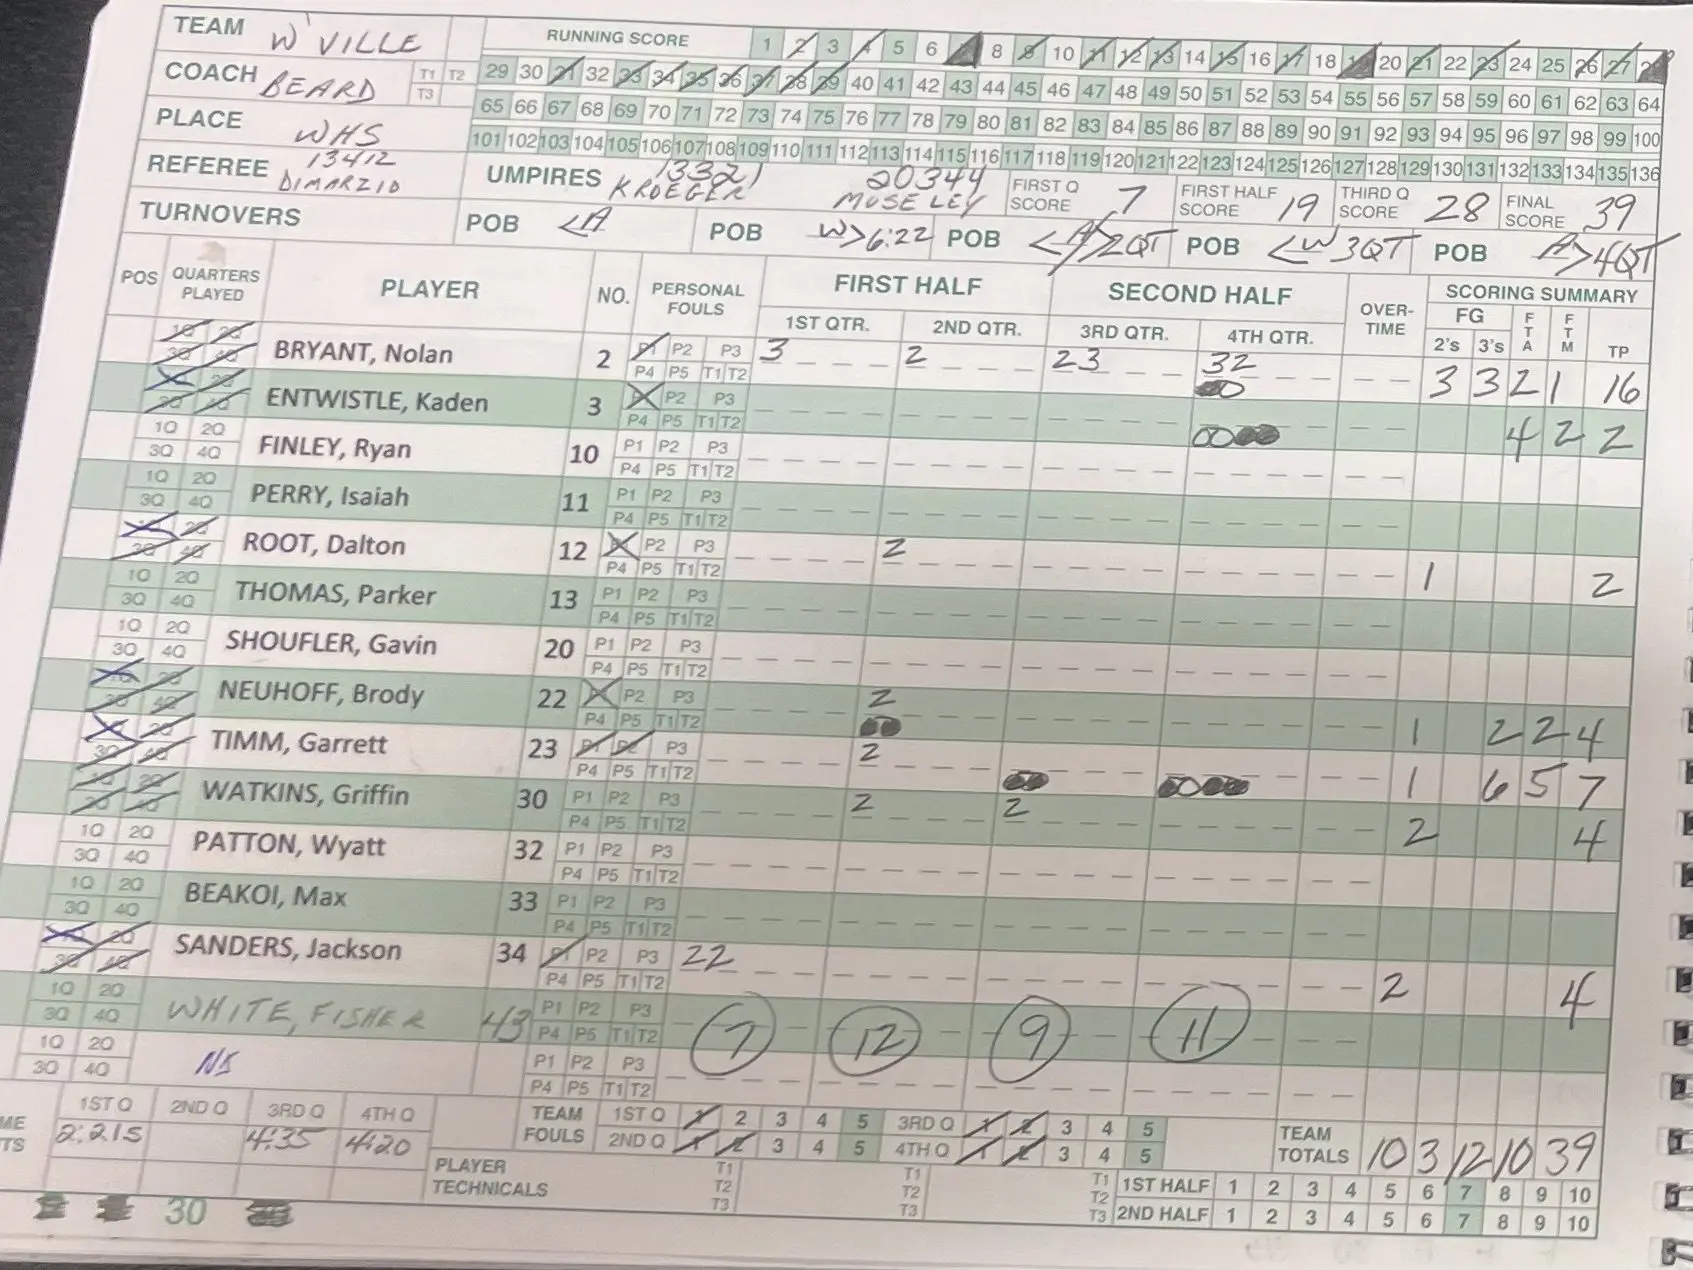 TEAM W'VILLE RUNNING SCORE 1 2 3 4 5 6 7 8 9 10 11 12 13 14 15 16 17 18 19 20 21 22 23 24 25 26 27 28
COACH BEARD T1 T2 T3 29 30 31 32 33 34 35 36 37 38 39 40 41 42 43 44 45 46 47 48 49 50 51 52 53 54 55 56 57 58 59 60 61 62 63 64
65 66 67 68 69 70 71 72 73 74 75 76 77 78 79 80 81 82 83 84 85 86 87 88 89 90 91 92 93 94 95 96 97 98 99 100
PLACE WHS 101 102 103 104 105 106 107 108 109 110 111 112 113 114 115 116 117 118 119 120 121 122 123 124 125 126 127 128 129 130 131 132 133 134 135 136
REFEREE 13412 DIMARZIO UMPIRES 13321 KROEGER 20344 MOSELEY FIRST Q SCORE 7 FIRST HALF SCORE 19 THIRD Q SCORE 28 FINAL SCORE 39
TURNOVERS POB <A POB W>6:22 POB <A>2QT POB <W 3QT POB A>4QT
POS QUARTERS PLAYED PLAYER NO. PERSONAL FOULS FIRST HALF SECOND HALF OVER-TIME SCORING SUMMARY
1ST QTR. 2ND QTR. 3RD QTR. 4TH QTR. FG 2's 3's FTA FTM TP
1Q 2Q 3Q 4Q BRYANT, Nolan 2 P1 P2 P3 P4 P5 T1 T2 3 2 23 32 3 3 2 1 16
1Q 2Q 3Q 4Q ENTWISTLE, Kaden 3 P1 P2 P3 P4 P5 T1 T2 4 2 2
1Q 2Q 3Q 4Q FINLEY, Ryan 10 P1 P2 P3 P4 P5 T1 T2
1Q 2Q 3Q 4Q PERRY, Isaiah 11 P1 P2 P3 P4 P5 T1 T2
1Q 2Q 3Q 4Q ROOT, Dalton 12 P1 P2 P3 P4 P5 T1 T2 2 1 2
1Q 2Q 3Q 4Q THOMAS, Parker 13 P1 P2 P3 P4 P5 T1 T2
1Q 2Q 3Q 4Q SHOUFLER, Gavin 20 P1 P2 P3 P4 P5 T1 T2
1Q 2Q 3Q 4Q NEUHOFF, Brody 22 P1 P2 P3 P4 P5 T1 T2 2 1 2 2 4
1Q 2Q 3Q 4Q TIMM, Garrett 23 P1 P2 P3 P4 P5 T1 T2 2 1 6 5 7
1Q 2Q 3Q 4Q WATKINS, Griffin 30 P1 P2 P3 P4 P5 T1 T2 2 2 2 4
1Q 2Q 3Q 4Q PATTON, Wyatt 32 P1 P2 P3 P4 P5 T1 T2
1Q 2Q 3Q 4Q BEAKOI, Max 33 P1 P2 P3 P4 P5 T1 T2
1Q 2Q 3Q 4Q SANDERS, Jackson 34 P1 P2 P3 P4 P5 T1 T2 22 2 4
1Q 2Q 3Q 4Q WHITE, FISHER 43 P1 P2 P3 P4 P5 T1 T2 7 12 9 11
1Q 2Q 3Q 4Q P1 P2 P3 P4 P5 T1 T2
1ST Q 2ND Q 3RD Q 4TH Q TEAM FOULS 1ST Q 1 2 3 4 5 3RD Q 1 2 3 4 5 TEAM TOTALS 10 3 12 10 39
4:35 4:20 2ND Q 1 2 3 4 5 4TH Q 1 2 3 4 5
PLAYER TECHNICALS T1 T2 T3 T1 T2 T3 T1 T2 T3 1ST HALF 1 2 3 4 5 6 7 8 9 10
2ND HALF 1 2 3 4 5 6 7 8 9 10
30